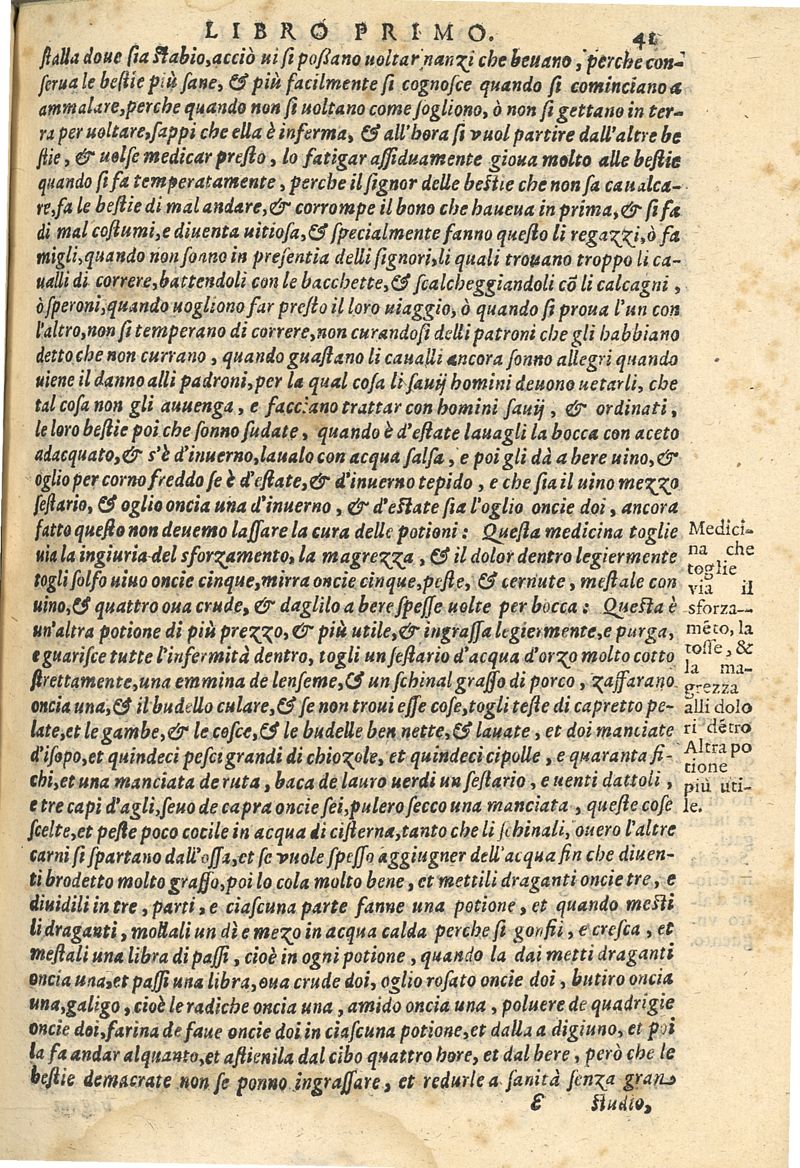 LIBRO PRIMO. 41
stalla doue sia stabio, acciò ui si poßano uoltar nanzi che beuano, perche con-
serua le bestie più sane, & più facilmente si cognosce quando si cominciano a
ammalare, perche quando non si uoltano come sogliono, ò non si gettano in ter-
ra per uoltare, sappi che ella è inferma, & all'hora si vuol partire dall'altre be
stie, & uolse medicar presto, lo fatigar assiduamente gioua molto alle bestie
quando si fa temperatamente, perche il signor delle bestie che non sa caualca-
re, fa le bestie di mal andare, & corrompe il bono che haueua in prima, & si fa
di mal costumi, e diuenta uitiosa, & specialmente fanno questo li regazzi, ò fa
migli, quando non sonno in presentia delli signori, li quali trouano troppo li ca-
ualli di correre, battendoli con le bacchette, & scalcheggiandoli cõ li calcagni,
ò speroni, quando uogliono far presto il loro uiaggio, ò quando si proua l'un con
l'altro, non si temperano di correre, non curandosi delli patroni che gli habbiano
detto che non currano, quando guastano li caualli ancora sonno allegri quando
uiene il danno alli padroni, per la qual cosa li sauij homini deuono uetarli, che
tal cosa non gli auuenga, e facciano trattar con homini sauij, & ordinati,
le loro bestie poi che sonno sudate, quando è d'estate lauagli la bocca con aceto
adacquato, & s'è d'inuerno, laualo con acqua salsa, e poi gli dà a bere uino, &
oglio per corno freddo se è d'estate, & d'inuerno tepido, e che sia il uino mezzo
sestario, & oglio oncia una d'inuerno, & d'estate sia l'oglio oncie doi, ancora
fatto questo non deuemo lassare la cura delle potioni: Questa medicina toglie
uia la ingiuria del sforzamento, la magrezza, & il dolor dentro legiermente
togli solfo uiuo oncie cinque, mirra oncie cinque, peste, & cernute, mestale con
uino, & quattro oua crude, & daglilo a bere spesse uolte per bocca: Questa è
un'altra potione di più prezzo, & più utile, & ingrassa legiermente, e purga,
e guarisce tutte l'infermità dentro, togli un sestario d'acqua d'orzo molto cotto
strettamente, una emmina de lenseme, & un schinal grasso di porco, zaffarano
oncia una, & il budello culare, & se non troui esse cose, togli teste di capretto pe-
late, et le gambe, & le cosce, et le budelle ben nette, & lauate, et doi manciate
d'isopo, et quindeci pesci grandi di chiozole, et quindeci cipolle, e quaranta fi-
chi, et una manciata de ruta, baca de lauro uerdi un sestario, e uenti dattoli,
e tre capi d'agli, seuo de capra oncie sei, pulero secco una manciata, queste cose
scelte, et peste poco cocile in acqua di cisterna, tanto che li schinali, ouero l'altre
carni si spartano dall'ossa, et se vuole spesso aggiugner dell'acqua fin che diuen-
ti brodetto molto grasso, poi lo cola molto bene, et mettili draganti oncie tre, e
diuidili in tre, parti, e ciascuna parte fanne una potione, et quando mesti
li draganti, mollali un dì e mezo in acqua calda perche si gonfii, e cresca, et
mestali una libra di passi, cioè in ogni potione, quando la dai metti draganti
oncia una, et passi una libra, oua crude doi, oglio rosato oncie doi, butiro oncia
una, galigo, cioè le radiche oncia una, amido oncia una, poluere de quadrigie
oncie doi, farina de faue oncie doi in ciascuna potione, et dalla a digiuno, et poi
la fa andar alquanto, et astienila dal cibo quattro hore, et dal bere, però che le
bestie demacrate non se ponno ingrassare, et redurle a sanità senza gran
E studio,
Medici-
na che
toglie
via il
sforza-
mẽto, la
tosse, &
la ma-
grezza
alli dolo
ri dẽtro
Altra po
tione
più uti-
le.